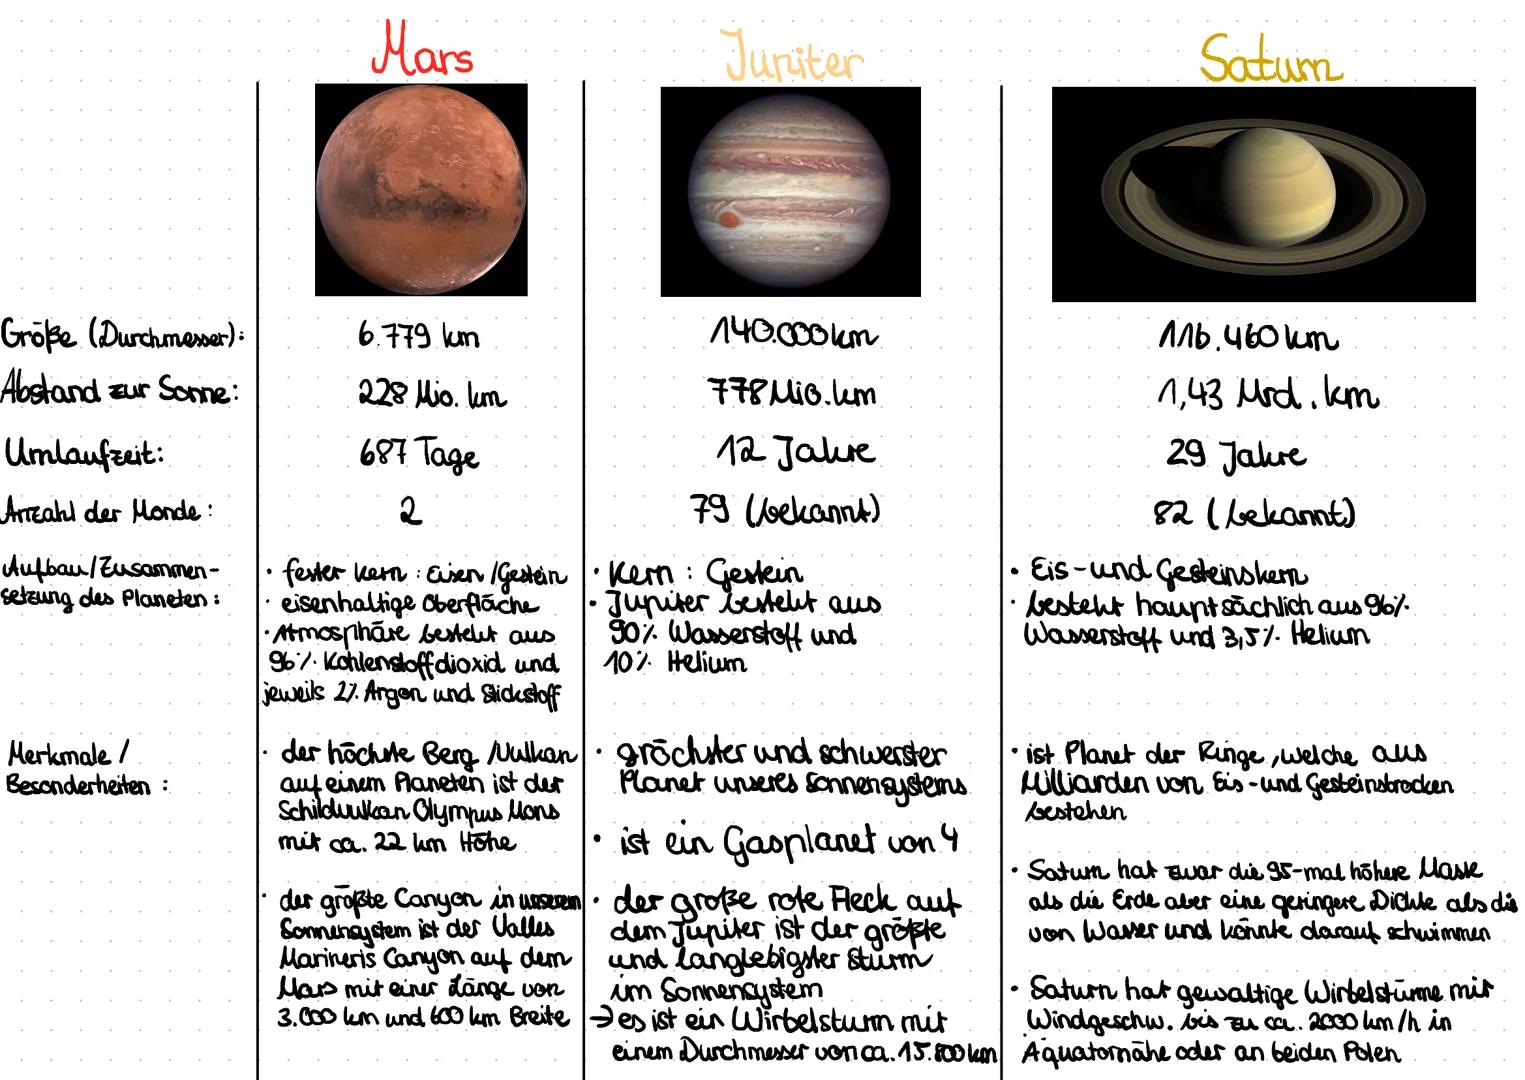 Mars
Jupiter
Saturn
Größe (Durchmesser):
6.779 km
140.000 km
116.460 km
Abstand zur Sonne:
228 Mio. km
778 Mio. km
1,43 Mrd. km
Umlaufzeit:
687 Tage
12 Jahre
29 Jahre
Anzahl der Monde:
2
79 (bekannt)
82 (bekannt)
Aufbau/Zusammen-
setzung des Planeten:
• fester Kern: Eisen/Gestein
• eisenhaltige Oberfläche
• Atmosphäre besteht aus
96% Kohlenstoffdioxid und
jeweils 2% Argon und Stickstoff
• Kern: Gestein
• Jupiter besteht aus
90% Wasserstoff und
10% Helium
• Eis- und Gesteinskern
• besteht hauptsächlich aus 96%
Wasserstoff und 3,5% Helium
Merkmale /
Besonderheiten:
• der höchste Berg/Vulkan
auf einem Planeten ist der
Schildvulkan Olympus Mons
mit ca. 22 km Höhe
• der größte Canyon in unserem
Sonnensystem ist der Valles
Marineris Canyon auf dem
Mars mit einer Länge von
3.000 km und 600 km Breite
• gröchster und schwerster
Planet unseres Sonnensystems
• ist ein Gasplanet von 4
• der große rote Fleck auf
dem Jupiter ist der größte
und langlebigster Sturm
im Sonnensystem
→ es ist ein Wirbelsturm mit
einem Durchmesser von ca. 15.800 km
• ist Planet der Ringe, welche aus
Milliarden von Eis- und Gesteinsbrocken
bestehen
• Saturn hat zwar die 95-mal höhere Masse
als die Erde aber eine geringere Dichte als die
von Wasser und könnte darauf schwimmen
• Saturn hat gewaltige Wirbelstürme mit
Windgeschw. bis zu ca. 2000 km/h in
Äquatornähe oder an beiden Polen